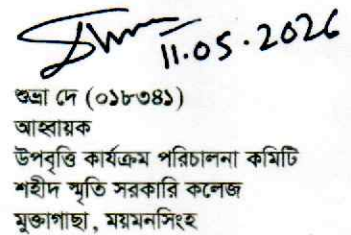 11.05.2026
শুভ্রা দে (০১৮৩৪১)
আহ্বায়ক
উপবৃত্তি কার্যক্রম পরিচালনা কমিটি
শহীদ স্মৃতি সরকারি কলেজ
মুক্তাগাছা, ময়মনসিংহ